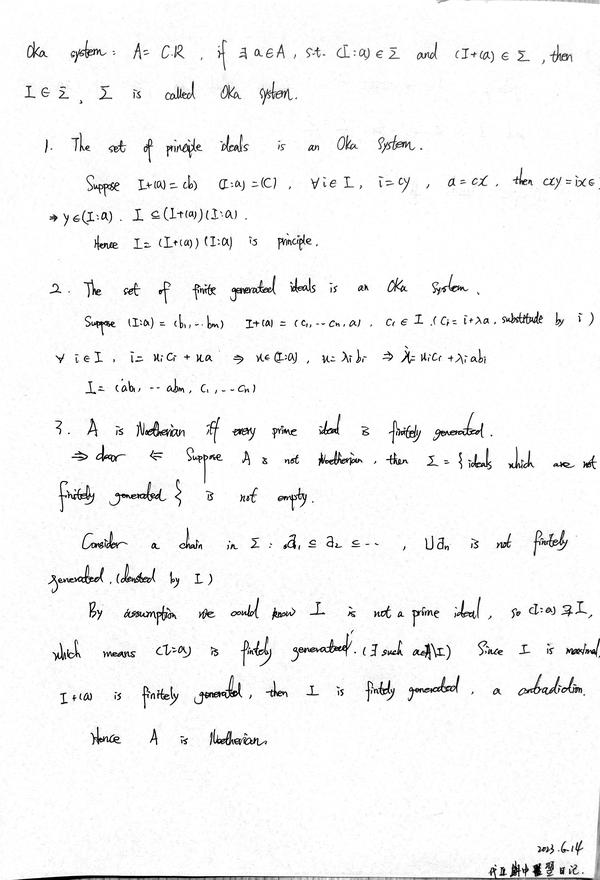 Oka system: A= C.R , if ∃ a∈A , s.t. (I:a) ∈ Σ and (I+(a)) ∈ Σ , then
I ∈ Σ , Σ is called Oka system.
1. The set of principle ideals is an Oka System.
Suppose I+(a) = (b) (I:a) = (C) , ∀i∈I , i=cy , a=cx , then cxy=ix∈
⇒ y∈(I:a) . I ⊆(I+(a))(I:a) .
Hence I= (I+(a))(I:a) is principle.
2. The set of finite generated ideals is an Oka System.
Suppose (I:a) = (b1, ·· bm) I+(a) = (c1, ·-- cn, a) , ci ∈ I .(ci= i+λa, substitude by i)
∀ i∈I , i= xici + xa ⇒ x∈(I:a) , x= λibi ⇒ i= xici +λiabi
I= (ab1, -- abm, c1, -- cn)
3. A is Noetherian iff every prime ideal is finitely generated.
⇒ clear ⇐ Suppose A is not Noetherian , then Σ = { ideals which are not
finitely generated } is not empty.
Consider a chain in Σ : a1 ⊆ a2 ⊆ --- , ∪an is not finitely
generated. (denoted by I)
By assumption we could know I is not a prime ideal , so (I:a) ⊋ I ,
which means (I:a) is finitely generated. (∃ such a∈A\I) Since I is maximal,
I+(a) is finitely generated , then I is finitely generated , a
Hence A is Noetherian.
2023.6.14
代 日记.